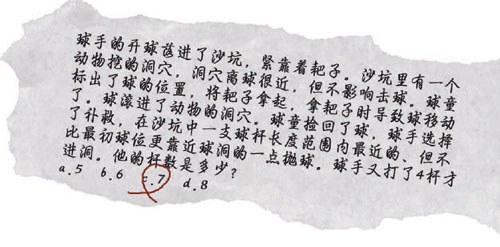 球手的开球落进了沙坑，紧靠着耙子。沙坑里有一个
动物挖的洞穴，洞穴离球很近，但不影响击球。球童
标出了球的位置，将耙子拿起，拿耙子时导致球移动
了。球滚进了动物的洞穴。球童捡回了球。球手选择
了补救，在沙坑中一支球杆长度范围内最近的、但不
比最初球位更靠近球洞的一点抛球。球手又打了4杆才
进洞。他的杆数是多少？
a.5 b.6 c.7 d.8